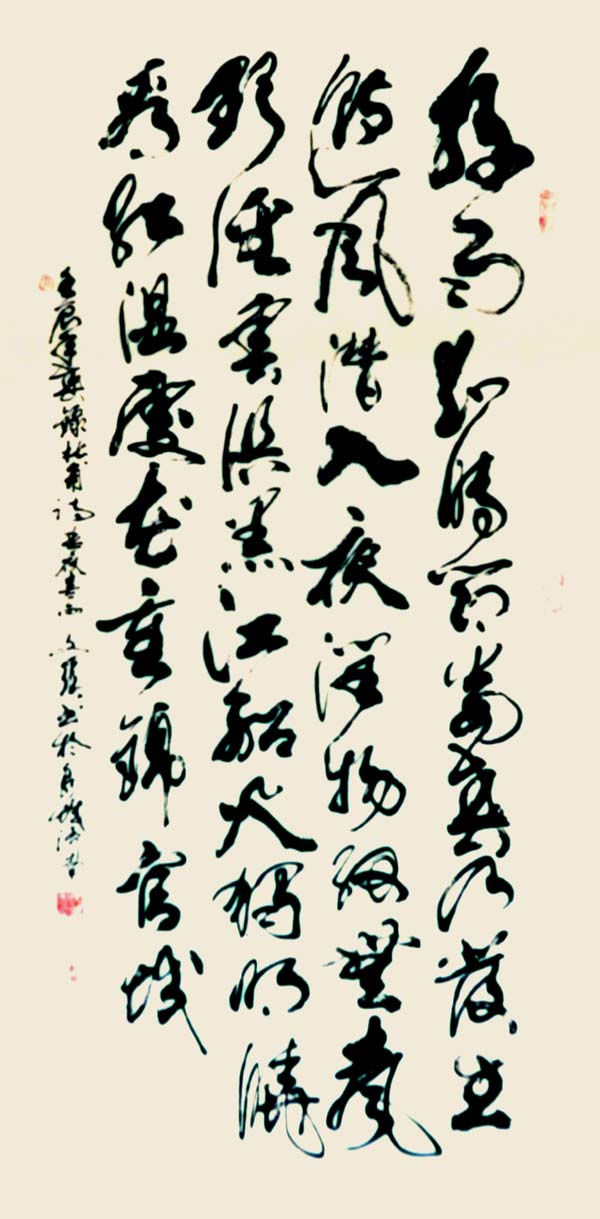 好雨知時節當春乃發生
隨風潛入夜潤物細無聲
野徑雲俱黑江船火獨明曉
看紅濕處花重錦官城
壬辰錄杜甫詩春夜喜雨文強書於